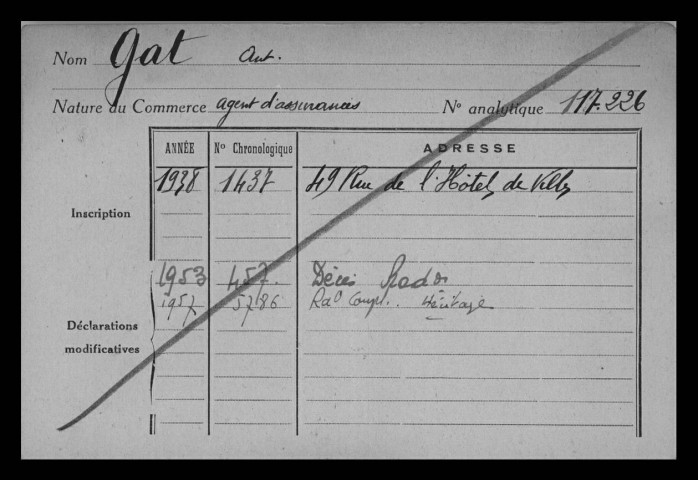 Nom Gat Ant.
Nature du Commerce agent d'assurances Nº analytique 117.226
ANNÉE Nº Chronologique ADRESSE
1938 1437 49 Rue de l'Hôtel de Ville
Inscription
1953 457. Décès
1957 5786 Rad Compl. Héritage
Déclarations
modificatives